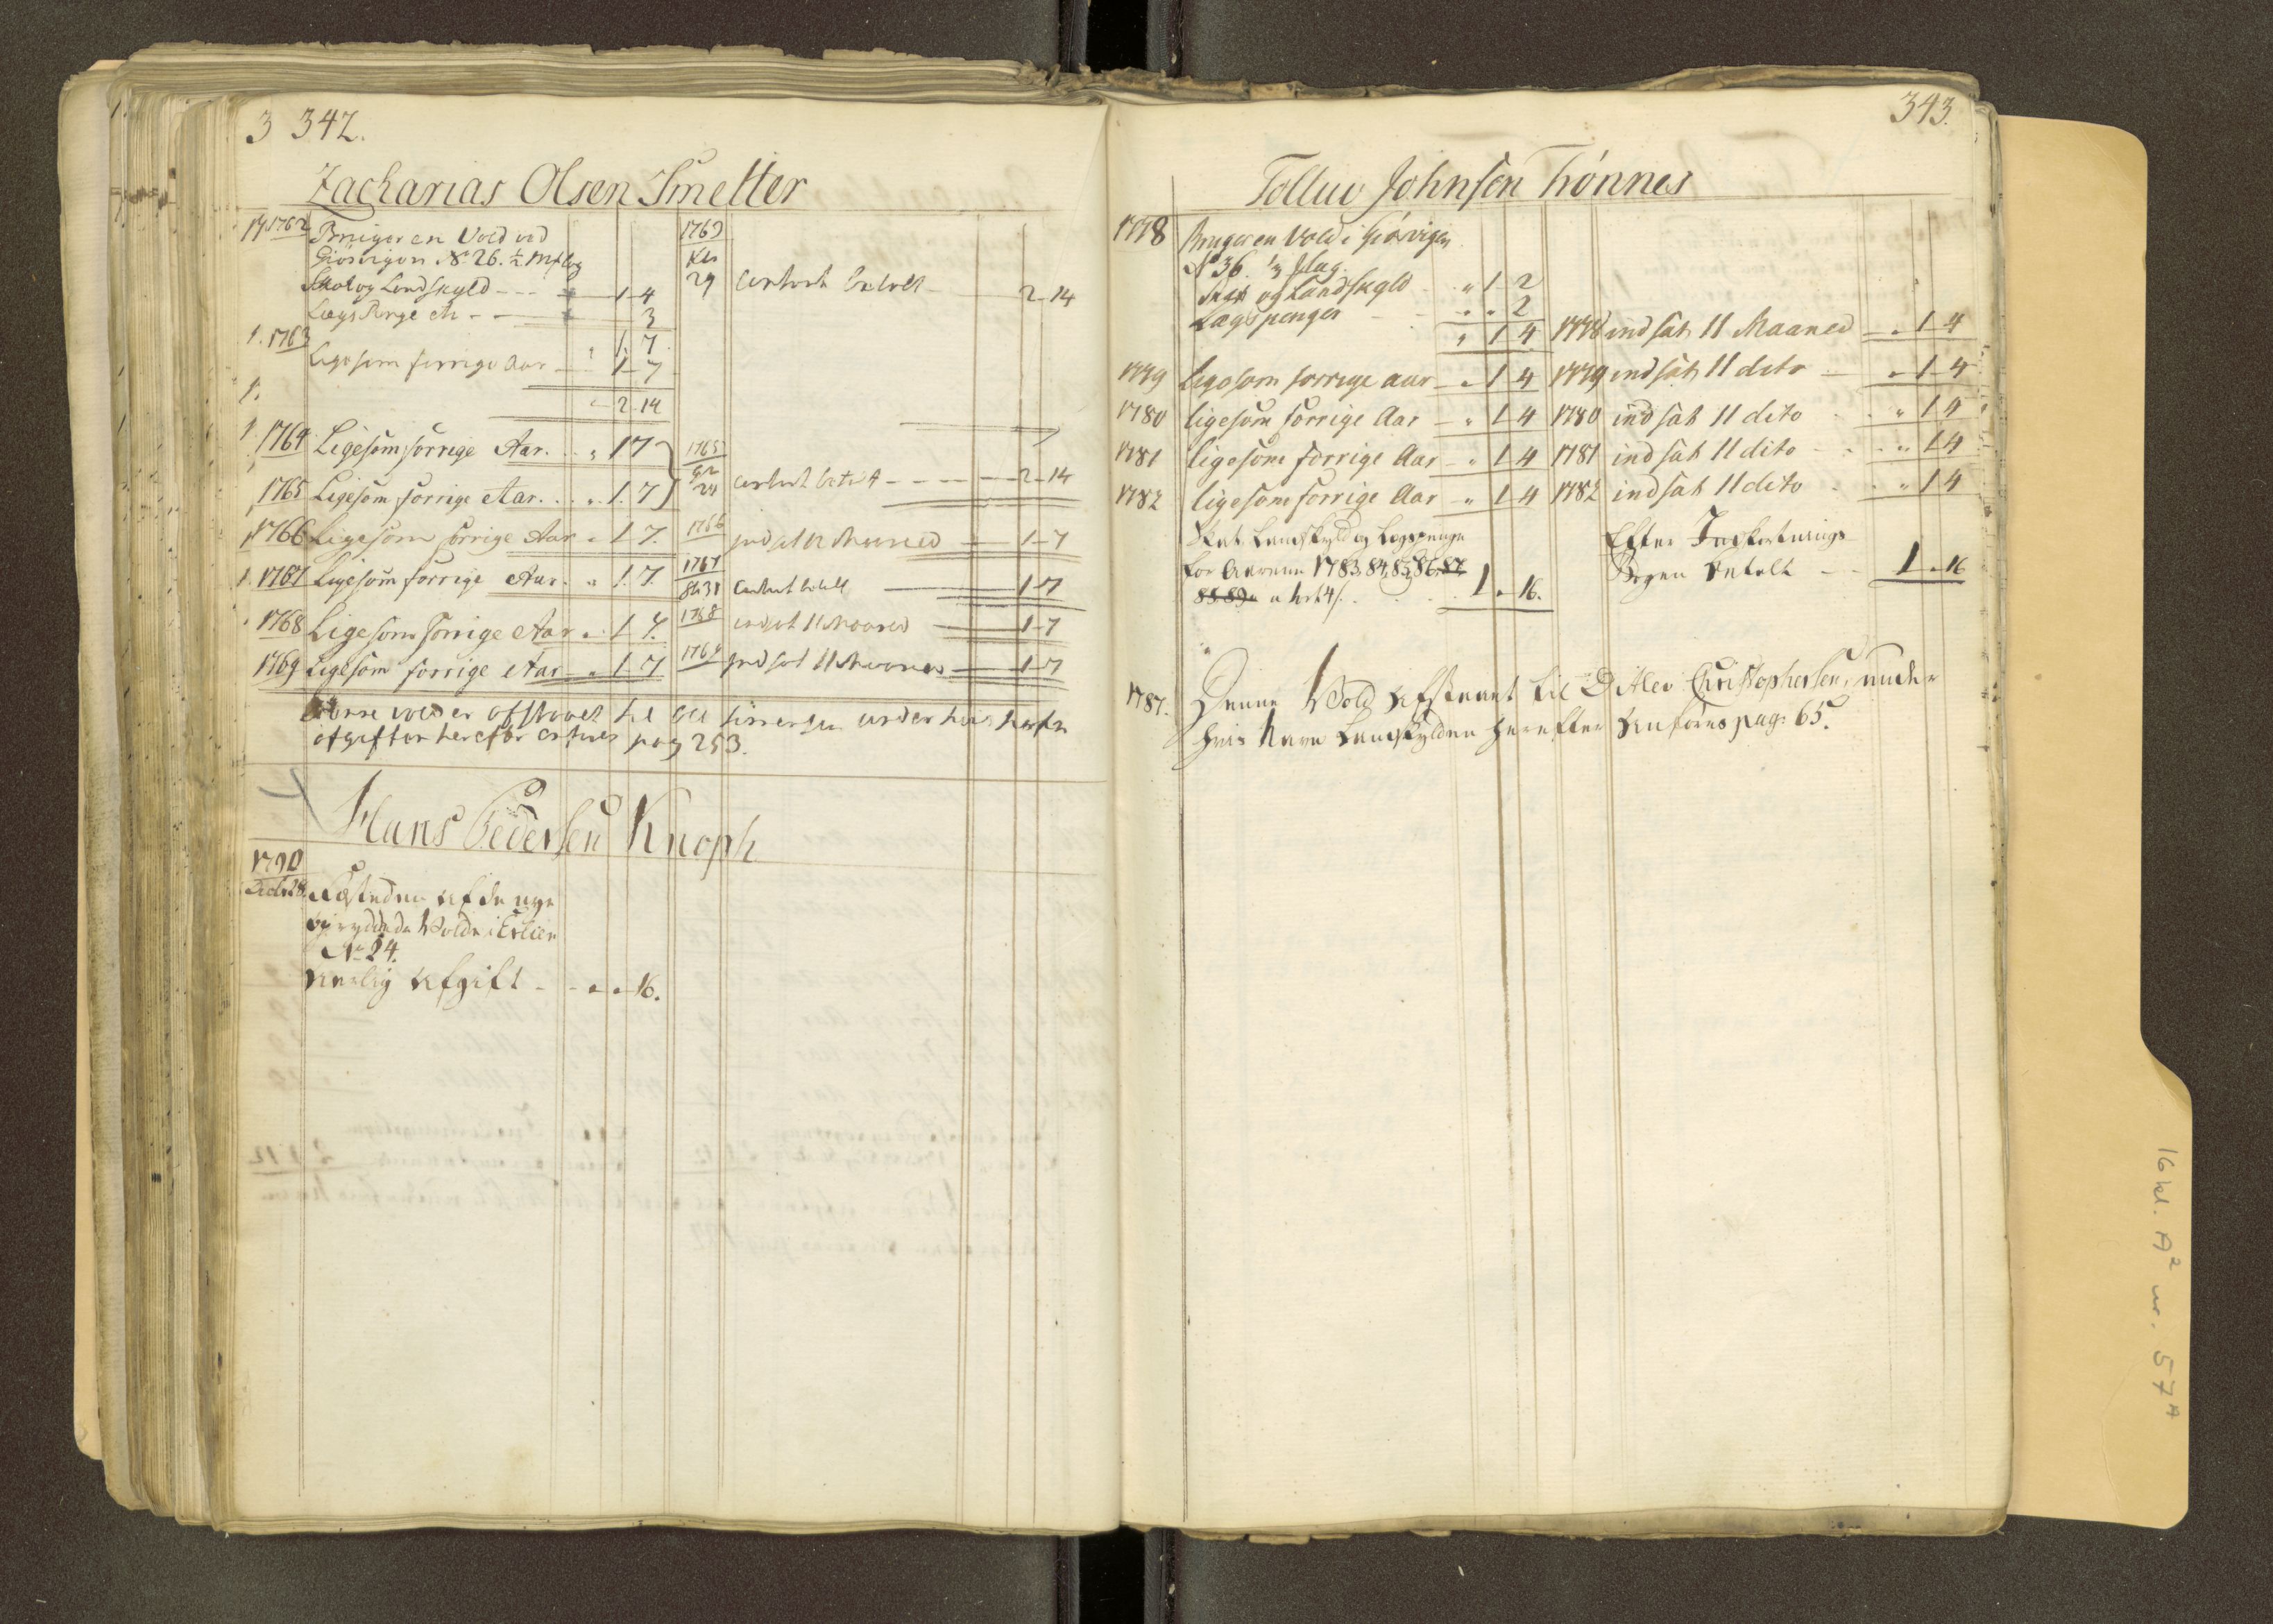 3 342.
Zacharias Olsen Smelter
1762 Bruger en Vold ved
Giösvigen No 26. ½ Mæling
Skat og Landskyld - - - 1 - 4
Lægs Penge - - 3
1 . 7
1763 Lige som forrige Aar - 1 - 7
2 - 14
1763
29 Contant betalt - 2 - 14
1764 Ligesom forrige Aar. . . " 1 7
1765 Ligesom forrige Aar. . . " 1. 7
1765
24 contant betalt - - - - 2 - 14
1766 Ligesom forrige Aar " 1. 7. 1766 ind sat 11 Maaned - 1 - 7
1767 Ligesom forrige Aar. " 1. 7. 1767
31 Contant betalt - 1 - 7
1768 Ligesom forrige Aar " 1. 7. 1768 indsat 11 Maaned - 1 - 7
1769 Ligesom forrige Aar - " 1. 7 1769 ind sat 11 Maaned - 1 - 7
Denne vold er afstaaet til under hans
afgiften herefter anføres pag 253.
Hans Pedersen Knoph
1790
Decbr 28. Fæstede en af de nye
opryddede Volde i
No 24.
Aarlig Afgift - - " " 16.
343.
Tolluv Johnsen Trönnes
1778 Bruger en Vold i Giösvigen
No 36. ⅓ Mæling
Skat og Landskyld - " 1 - 2
Lægspenger - - " " 2
" 1 4 1778 ind sat 11 Maaned - " 1 - 4
1779 ligesom forrige aar - " 1 4 1779 ind sat 11 dito - " 1 - 4
1780 ligesom forrige Aar - " 1 4 1780 ind sat 11 dito - " 1 4
1781 ligesom forrige Aar - " 1 4 1781 ind sat 11 dito - " 1 4
1782 ligesom forrige Aar - " 1 4 1782 ind sat 11 dito - " 1 4
Skat Landskyld og Lægspenge
for Aarene 1783, 84, 85, 86, 87,
88. 89. a 4 s. . . . 1 " 16.
Efter Inskorterings
Bogen betalt - - 1 " 16
1787. Denne Vold afstaaet til Ditlev Christophersen, under
hvis Navn Landskylden herefter anføres pag: 65.
16 kl. A² nr. 57 A